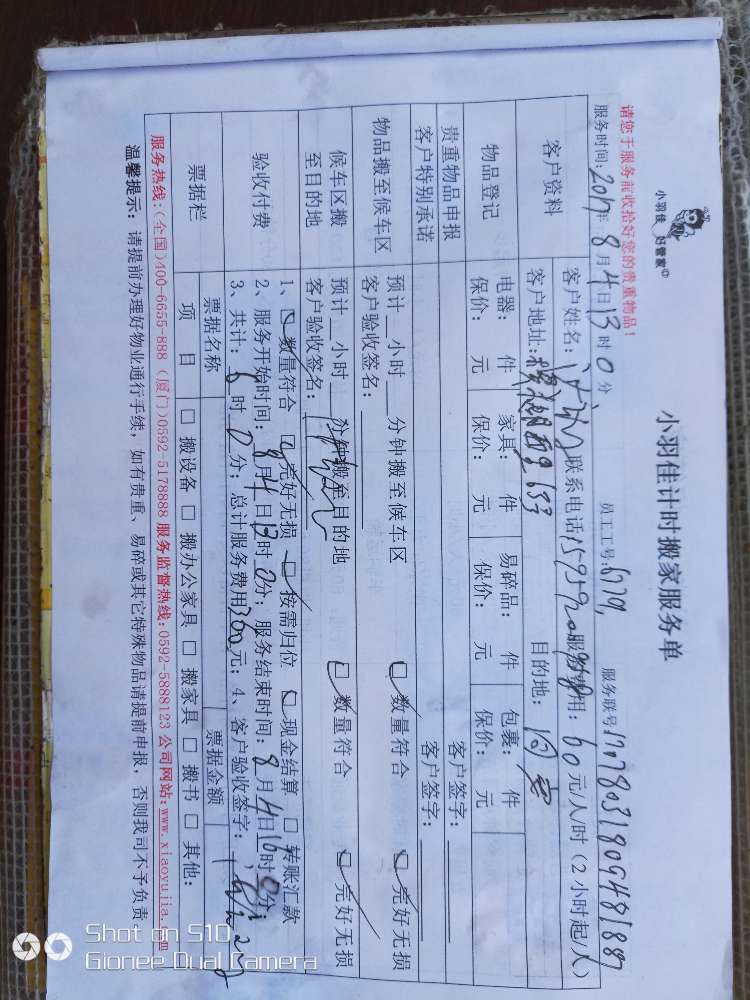 小羽佳 好管家
小羽佳计时搬家服务单
请您于服务前收拾好您的贵重物品!
服务时间:2017年8月4日13时0分 员工工号:6779, 服务联号
客户资料 客户姓名: 联系电话 服务费用:60元/人/时(2小时起/人)
客户地址: 目的地:同安
物品登记 电器: 件 家具: 件 易碎品: 件 包裹: 件
保价: 元 保价: 元 保价: 元 保价: 元
贵重物品申报 客户签字:
客户特别承诺 客户签字:
物品搬至候车区 预计__小时__分钟搬至候车区 □数量符合 □完好无损
客户验收签名:
候车区搬至目的地 预计__小时__分钟搬至目的地 □数量符合 □完好无损
客户验收签名:
验收付费 1、□数量符合 □完好无损 □按需归位 □现金结算 □转账汇款
2、服务开始时间:8月4日13时0分;服务结束时间:8月4日16时0分;
3、共计:6时0分;总计服务费用360元;4、客户验收签字:
票据栏 票据名称 票据金额
项目 □搬设备 □搬办公家具 □搬家具 □搬书 □其他:
服务热线:(全国)400-6655-888 (厦门)0592-5178888 服务监督热线:0592-5888123 公司网站:www.xiaoyujia.com
温馨提示:请提前办理好物业通行手续,如有贵重、易碎或其它特殊物品请提前申报,否则我司不予负责
Shot on S10
Gionee Dual Camera